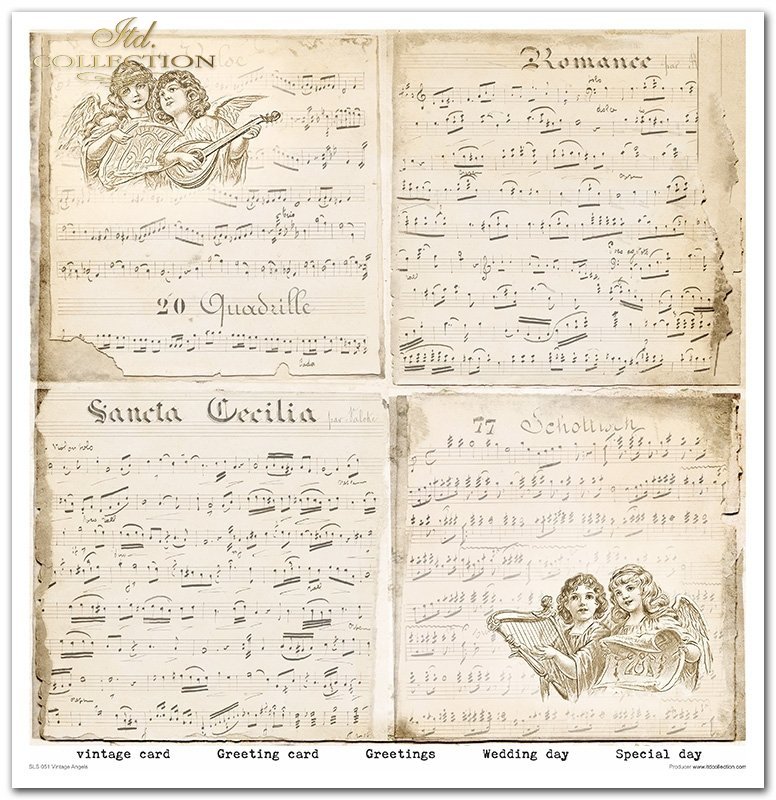 Itd.
COLLECTION
20 Quadrille
Romance par
Sancta Cecilia
77 Schottisch
78
vintage card Greeting card Greetings Wedding day Special day
SLS-051 Vintage Angels
Producer www.itdcollection.com